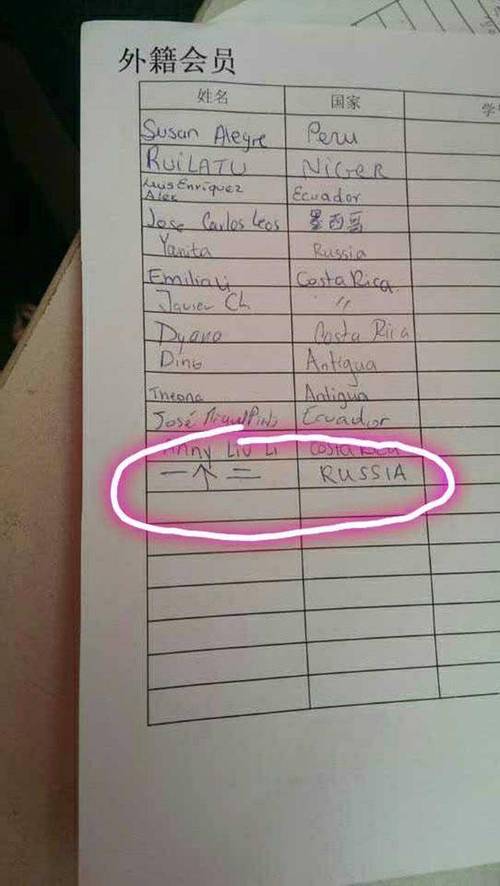 外籍会员
姓名 国家 学
Susan Alegre Peru
RUILATU NIGER
Luis Enriquez Ecuador
Alex
Jose Carlos Leos 墨西哥
Yanita Russia
Emilia Li Costa Rica
Javier Ch "
Dyana Costa Rica
Dino Antigua
Theona Antigua
José Miguel Ecuador
Anny Liu Li Costa Rica
一个二 RUSSIA